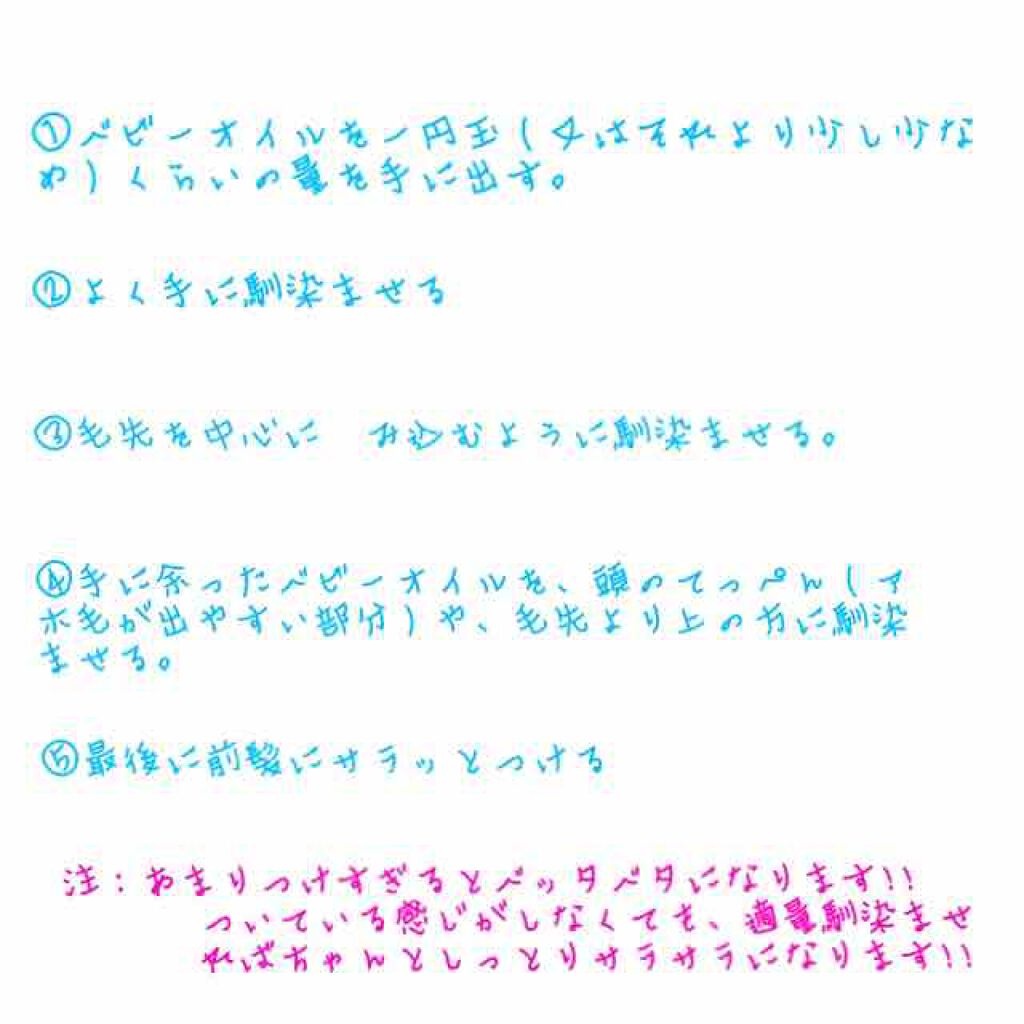 ①ベビーオイルを一円玉(又はそれより少し少な
め)くらいの量を手に出す。
②よく手に馴染ませる
③毛先を中心に　み込むように馴染ませる。
④手に余ったベビーオイルを、頭のてっぺん(ア
ホ毛が出やすい部分)や、毛先より上の方に馴染
ませる。
⑤最後に前髪にサラッとつける
注:あまりつけすぎるとベッタベタになります!!
ついている感じがしなくても、適量馴染ませ
ればちゃんとしっとりサラサラになります!!